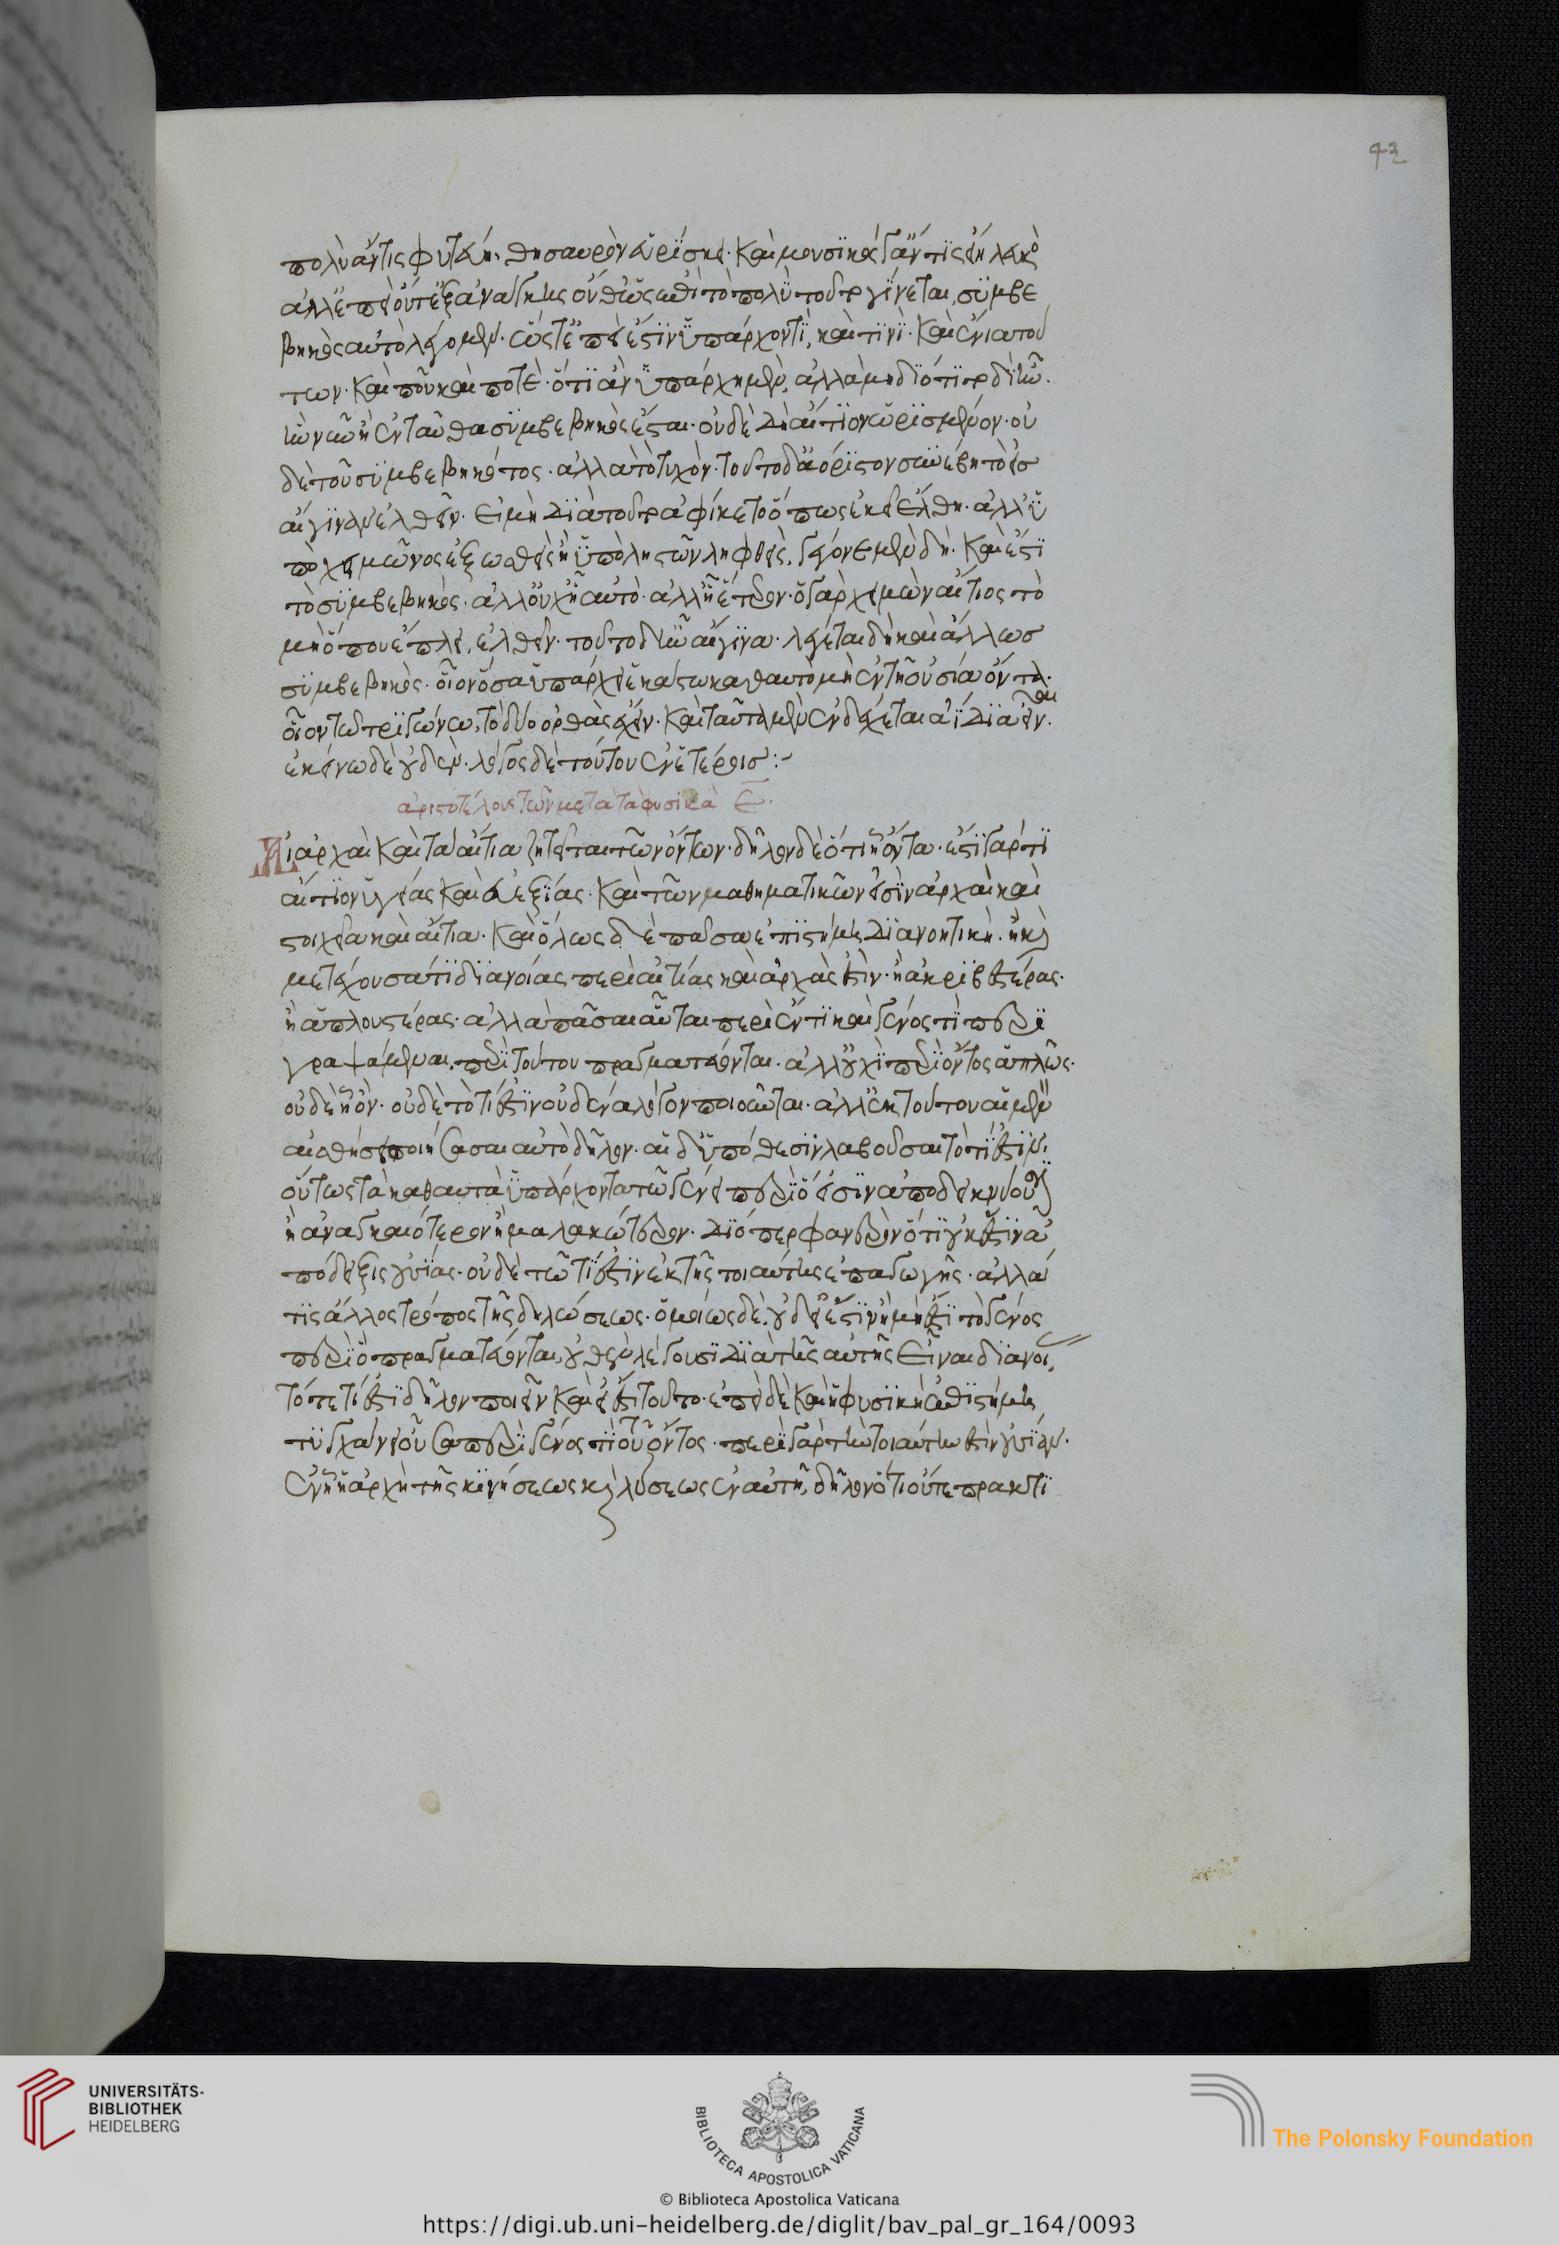 42
πολὺ ἄν τις φυτεύη, θησαυρὸν εὑρίσκει· καὶ μουσικὸς γ' ἄν τις εἴη λευκὸ
ἀλλ' ἐπεὶ οὔτε ἐξ ἀνάγκης οὔθ' ὡς ἐπὶ τὸ πολὺ τοῦτο γίνεται, συμβε
βηκὸς αὐτὸ λέγομεν· ὥστ' ἐπεὶ ἔστιν ὑπάρχον τί, καὶ τινὶ· καὶ ἔνια τού
των· καὶ ποῦ καὶ ποτὲ· ὅτι ἂν ὑπάρχη μὲν, ἀλλὰ μὴ διότι τοδὶ ἦν·
ἢ νῦν ἢ ἐνταῦθα συμβεβηκὸς ἔσται· οὐδὲ δὴ αἴτιον ὡρισμένον· οὐ
δὲ τοῦ συμβεβηκότος· ἀλλὰ τὸ τυχὸν· τοῦτο δ' ἀόριστον συνέβη τὸ εἰσ
αἴγιναν ἐλθεῖν· εἰ μὴ διὰ τοῦτο ἀφίκετο ὅπως ἐκεῖ ἔλθη· ἀλλ' ὑ
πὸ χειμῶνος ἐξωσθεὶς ἢ ὑπὸ ληστῶν ληφθεὶς, γέγονε μὲν δὴ· καὶ ἔστι
τὸ συμβεβηκὸς· ἀλλ' οὐχ ἧ αὐτὸ· ἀλλ' ἧ ἕτερον· ὁ γὰρ χειμὼν αἴτιος τὸ
μὴ ὅπου ἔπλει, ἐλθεῖν· τοῦτο δ' ἦν αἴγινα· λέγεται δὴ καὶ ἄλλωσ
συμβεβηκὸς· οἷον ὅσα ὑπάρχει ἑκάστω καθ' αὑτὸ μὴ ἐν τῆ οὐσία ὄντα·
οἷον τῶ τριγώνω, τὸ δύο ὀρθὰς ἔχειν· καὶ ταῦτα μὲν ἐνδέχεται ἀΐδια εἶναι·
ἐκείνω δὲ οὐδὲν· λόγος δὲ τούτου ἐν ἑτέροισ:~
ἀριστοτέλους τῶν μετὰ τὰ φυσικὰ Ε·
Αἱ ἀρχαὶ καὶ τὰ αἴτια ζητεῖται τῶν ὄντων· δῆλον δὲ ὅτι ἧ ὄντα· ἔστι γάρ τι
αἴτιον ὑγείας καὶ εὐεξίας· καὶ τῶν μαθηματικῶν εἰσὶν ἀρχαὶ καὶ
στοιχεῖα καὶ αἴτια· καὶ ὅλως δὲ πᾶσα ἐπιστήμη διανοητικὴ· ἢ καὶ
μετέχουσά τι διανοίας περὶ αἰτίας καὶ ἀρχάς ἐστιν· ἢ ἀκριβεστέρας·
ἢ ἁπλουστέρας· ἀλλὰ πᾶσαι αὗται περὶ ἕν τι καὶ γένος τὶ περι
γραψάμεναι, περὶ τούτου πραγματεύονται· ἀλλ' οὐχὶ περὶ ὄντος ἁπλῶς·
οὐδὲ ἧ ὄν· οὐδὲ τὸ τί ἐστιν οὐδένα λόγον ποιοῦνται· ἀλλ' ἐκ τούτου αἱ μὲν
αἰσθήσει ποιήσασαι αὐτὸ δῆλον· αἱ δ' ὑπόθεσιν λαβοῦσαι τὸ τί ἐστιν·
οὕτως τὰ καθ' αὑτὰ ὑπάρχοντα τῶ γένει περὶ ὅ εἰσιν ἀποδεικνύουσιν
ἢ ἀναγκαιότερον ἢ μαλακώτερον· διόπερ φανερὸν ὅτι οὐκ ἔστιν ἀ
πόδειξις οὐσίας· οὐδὲ τῶ τί ἐστιν ἐκ τῆς τοιαύτης ἐπαγωγῆς· ἀλλά
τις ἄλλος τρόπος τῆς δηλώσεως· ὁμοίως δὲ, οὐδ' εἰ ἔστιν ἢ μὴ ἔστι τὸ γένος
περὶ ὃ πραγματεύονται, οὐθὲν λέγουσι διὰ τὸ τῆς αὐτῆς εἶναι διανοί,
τό τε τί ἐστι δῆλον ποιεῖν καὶ εἰ ἔστι τοῦτο· ἐπεὶ δὲ καὶ ἡ φυσικὴ ἐπιστήμη
τυγχάνει οὖσα περὶ γένος τι τοῦ ὄντος· περὶ γὰρ τὴν τοιαύτην ἐστὶν οὐσίαν·
ἐν ἧ ἡ ἀρχὴ τῆς κινήσεως καὶ λύσεως ἐν αὐτῆ, δῆλον ὅτι οὔτε πρακτι
UNIVERSITÄTS-
BIBLIOTHEK
HEIDELBERG
BIBLIOTECA APOSTOLICA VATICANA
The Polonsky Foundation
© Biblioteca Apostolica Vaticana
https://digi.ub.uni-heidelberg.de/diglit/bav_pal_gr_164/0093